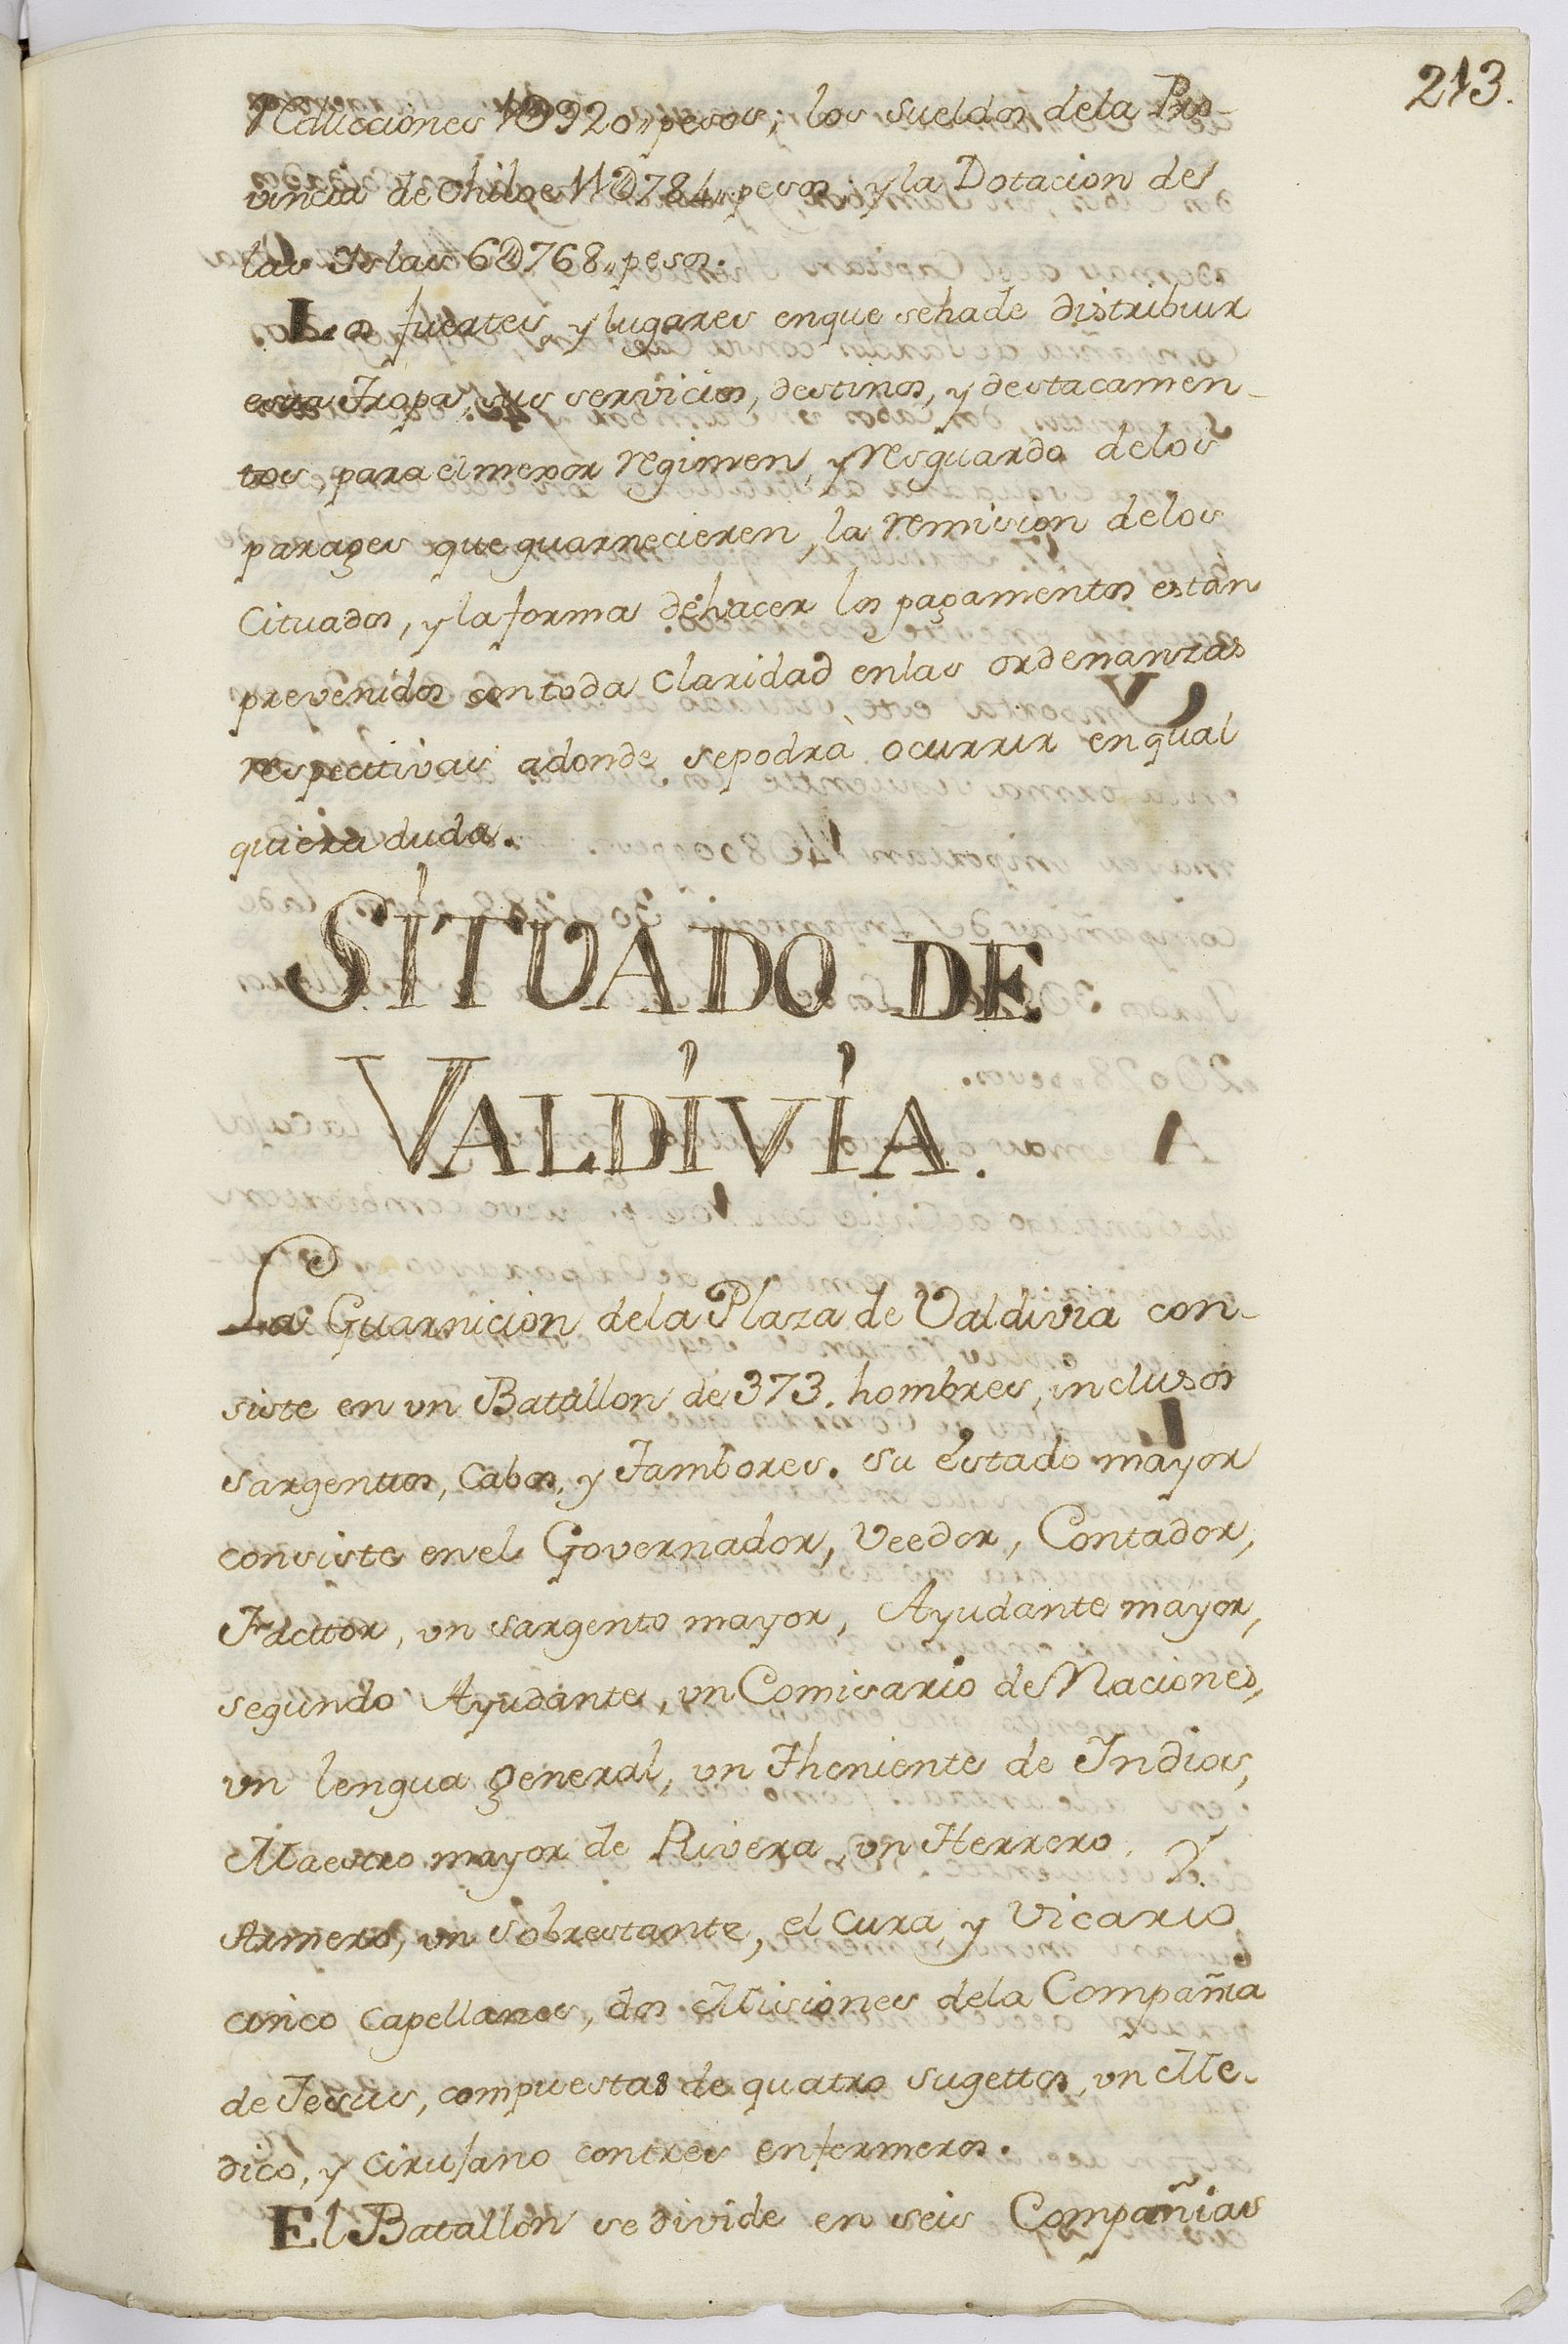 213.
Reducciones 1D920,, pesos, los sueldos dela Pro-
vincia de chiloe 11D784,, pesos, y la Dotacion de
las Islas 6D768,, pesos.
Los fuertes, y lugares enque sehade distribuir
esta Tropa, sus servicios, destinos, y destacamen-
tos, para el mexor regimen, y resguardo delos
parages que guarnecieren, la remision delos
Cituados, y la forma dehacer los pagamentos estàn
prevenidos con toda claridad enlas ordenanzas
respectivas adonde sepodrà ocurrir en qual
quiera duda.
SITUADO DE
VALDIVIA.
La Guarnicion dela Plaza de Valdivia con-
siste en un Batallon de 373. hombres, inclusos
sargentos, Cabos, y Tambores. su estado mayor
consiste enel Governador, Veedor, Contador,
Facttor, un sargento mayor, Ayudante mayor,
segundo Ayudante, un Comisario de Naciones,
un lengua general, un Theniente de Indios,
Maestro mayor de Rivera, un Herrero, y
Armero, un sobrestante, el Cura, y Vicario
cinco Capellanes, dos Misiones dela Compañia
de Jesus, compuestas de quatro sugettos, un Me-
dico, y Cirujano contres enfermeros.
El Batallon se divide en seis Compañias